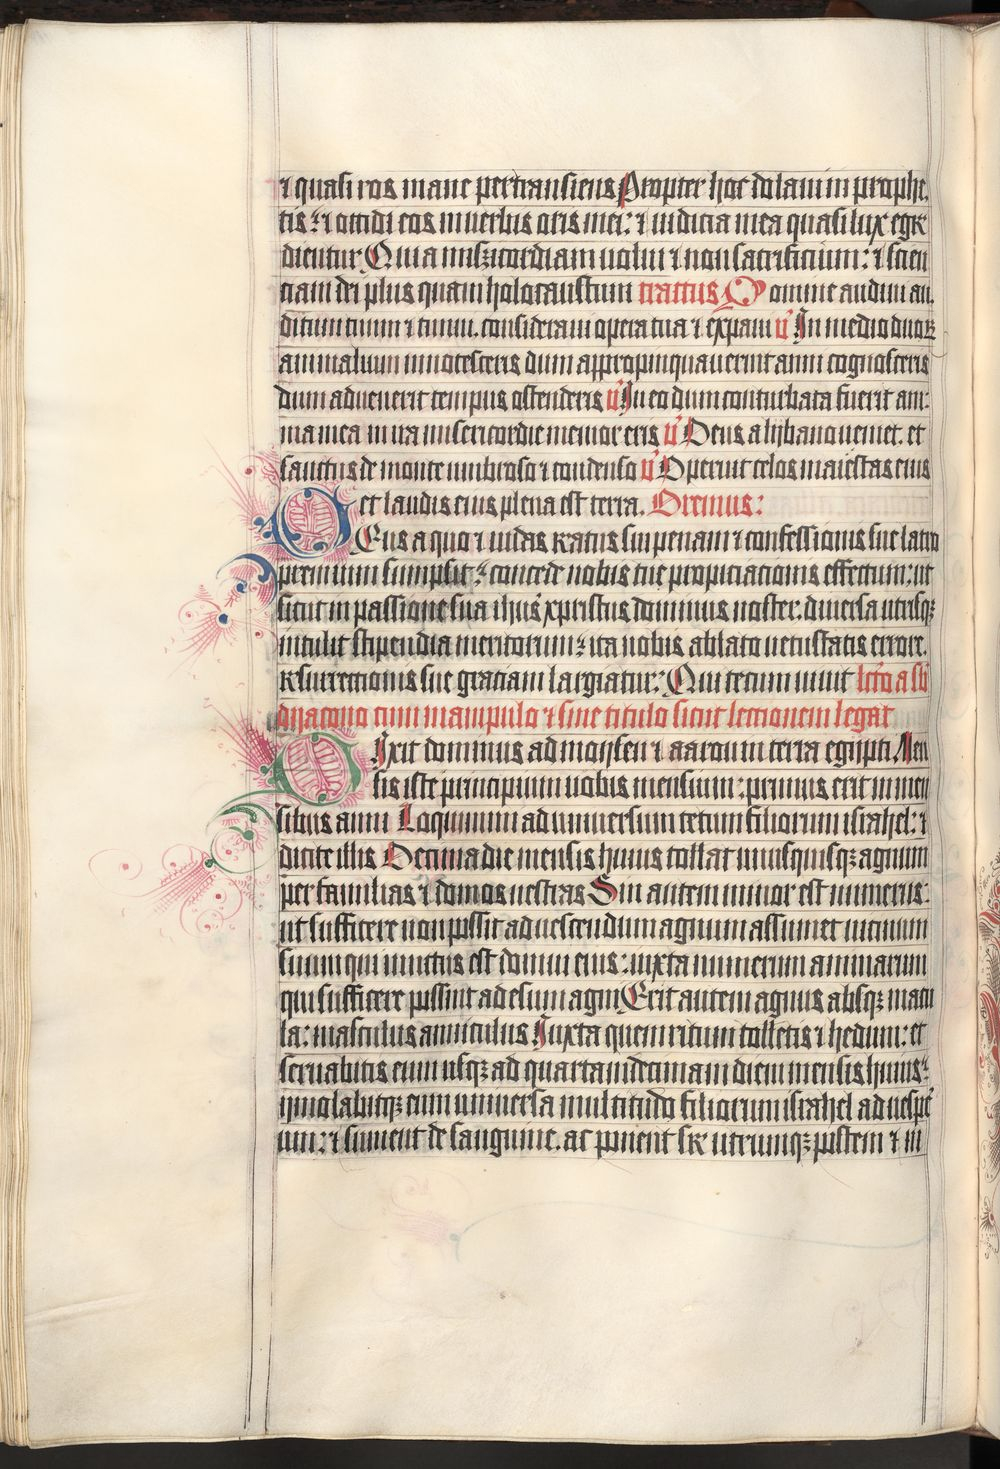 ⁊ quasi ros mane pertransiens Propter hoc dolaui in prophe
tis: ⁊ occidi eos in uerbis oris mei: ⁊ iudicia mea quasi lux egre
dientur Quia misericordiam uolui ⁊ non sacrificium: ⁊ scien
ciam dei plus quam holocaustum tractus Domine audiui au
ditum tuum ⁊ timui. consideraui opera tua ⁊ expaui ℣ In medio duoꝝ
animalium innotesceris dum appropinquauerint anni cognosceris
dum aduenerit tempus ostenderis ℣ In eo dum conturbata fuerit ani:
ma mea in ira misericordie memor eris ℣ Deus a lijbano ueniet. et
sanctus de monte umbroso ⁊ condenso ℣ Operuit celos maiestas eius
et laudis eius plena est terra. Oremus:
DEus a quo ⁊ iudas reatus sui penam ⁊ confessionis sue latro
premium sumpsit: concede nobis tue propiciacionis effectum: ut
sicut in passione sua ihus xpristus dominus noster. diuersa utrisqꝫ
intulit stipendia meritorum: ita nobis ablato uetustatis errore.
resurrectionis sue graciam largiatur: Qui tecum uiuit lcō a sb
dijacono cum manipulo ⁊ sine titulo sicut lectionem legat
DIxit dominus ad moysen ⁊ aaron in terra egipti Men
sis iste principium uobis mensium: primus erit in men
sibus anni Loquimini ad uniuersum cetum filiorum israhel: ⁊
dicite illis Decima die mensis huius tollat unusquisqꝫ agnum
per familias ⁊ domos uestras Sin autem minor est numerus:
ut sufficere non possit ad uescendum agnum assumet uicinum
suum qui iunctus est domui eius: iuxta numerum animarum
qui sufficere possint ad esum agni Erit autem agnus absqꝫ macu
la: masculus anniculus Iuxta quem ritum tolletis ⁊ hedum: et
seruabitis eum usqꝫ ad quartamdecimam diem mensis huius:
ijmolabitqꝫ eum uniuersa multitudo filiorum israhel ad uespe
um: ⁊ sument de sanguine. ac ponent sr̄ utrumqꝫ postem ⁊ in